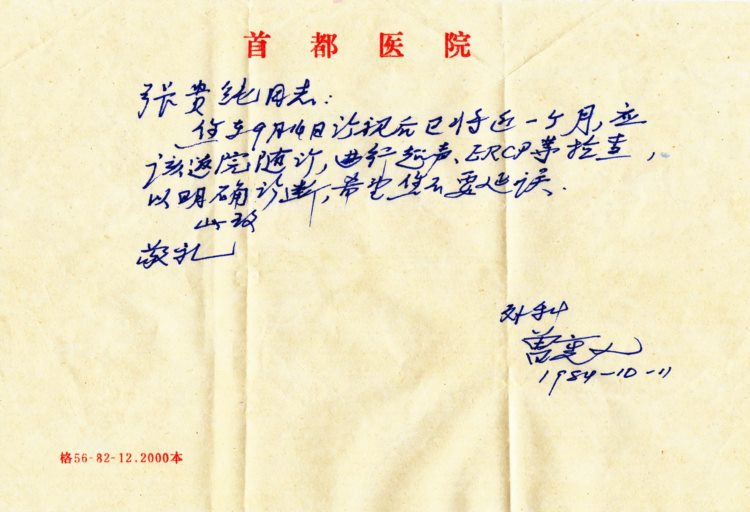 首都医院
张贵纯同志：
您在9月14日诊视后已将近一个月，应
该返院随诊，再行超声、ERCP等检查，
以明确诊断，希望您不要延误.
此致
敬礼
外科
曾宪九
1984-10-11
格56-82-12.2000本